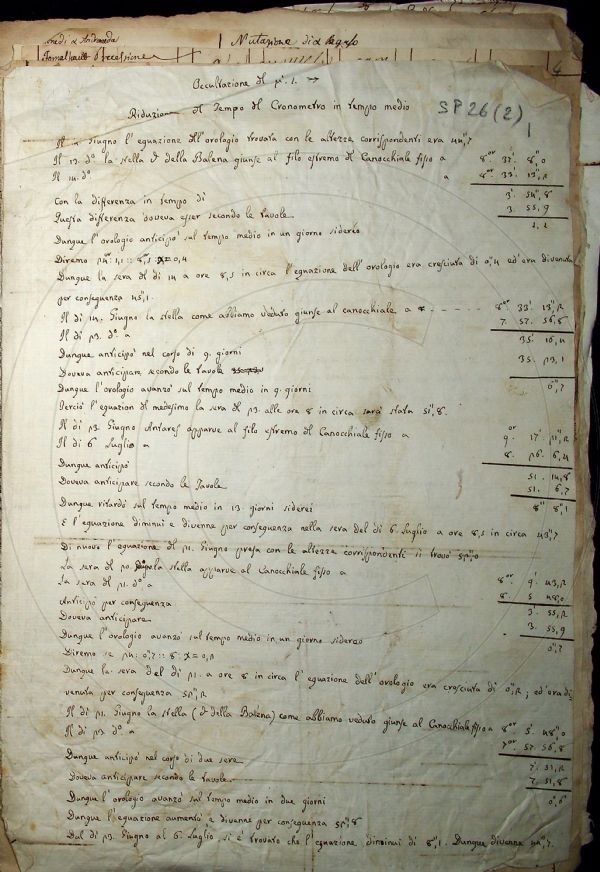 Mutazione di α Regolo
Occultazione del μ'. ♎ →
Riduzione del Tempo del Cronometro in tempo medio
SP 26 (2)
1
Giugno l'equazione dell'orologio trovata con le altezze corrispondenti era 44",7
Il 13. dº la stella δ della Balena giunse al filo estremo del Canocchiale fisso a 8.or 37'. 8",0
Il 14. dº a 8.or 33'. 13",2
Con la differenza in tempo di 3'. 54",8
Questa differenza doveva esser secondo le tavole 3. 55,9
1,1
Dunque l'orologio anticipò sul tempo medio in un giorno sidereo
Diremo 24or: 1,1 :: 8,5 x = 0,4
Dunque la sera del dì 14 a ore 8,5 in circa l'equazione dell'orologio era cresciuta di 0",4 ed era divenuta
per conseguenza 45",1.
Il dì 14. Giugno la stella come abbiamo veduto giunse al canocchiale a 8.or 33' 13",2
Il dì 23. dº a 7. 57. 56,8
35' 16,4
Dunque anticipò nel corso di 9. giorni
Doveva anticipare secondo le tavole 35. 23,1
Dunque l'orologio avanzò sul tempo medio in 9. giorni 6",7
Perciò l'equazion del medesimo la sera del 23. alle ore 8 in circa sarà stata 51",8.
Il dì 23 Giugno Antares apparve al filo estremo del Canocchiale fisso a 9.or 17' 21",2
Il dì 6 Luglio a 8. 26. 6,4
Dunque anticipò 51. 14,8
Doveva anticipare secondo le Tavole 51. 6,7
8",1
Dunque ritardò sul tempo medio in 13 giorni siderei
E l'equazione diminuì e divenne per conseguenza nella sera del dì 6 Luglio a ore 8,5 in circa 43",7
Di nuovo l'equazione del 21. Giugno presa con le altezze corrispondenti si trovò 52",0
La sera del 20. la stella apparve al Canocchiale fisso a 8.or 9'. 43,2
La sera del 21. dº a 8. 5 48,0
Anticipò per conseguenza 3'. 55,2
Doveva anticipare 3. 55,9
Dunque l'orologio avanzò sul tempo medio in un giorno sidereo 0",7
Diremo se 24: 0",7 :: 8: x = 0,2
Dunque la sera del dì 21. a ore 8 in circa l'equazione dell'orologio era cresciuta di 0",2; ed'era di
venuta per conseguenza 52",2
Il dì 21. Giugno la stella (δ della Balena) come abbiamo veduto giunse al Canocchiale fisso a 8.or 5'. 48",0
Il dì 23 dº a 7.or 57. 56,8
Dunque anticipò nel corso di due sere 7. 51,2
Doveva anticipare secondo le tavole 7. 51,8
Dunque l'orologio avanzò sul tempo medio in due giorni 0",6
Dunque l'equazione aumentò e divenne per conseguenza 52",8
Dal dì 23. Giugno al 6. Luglio si è trovato che l'equazione diminuì di 8",1. Dunque divenne 44",7.